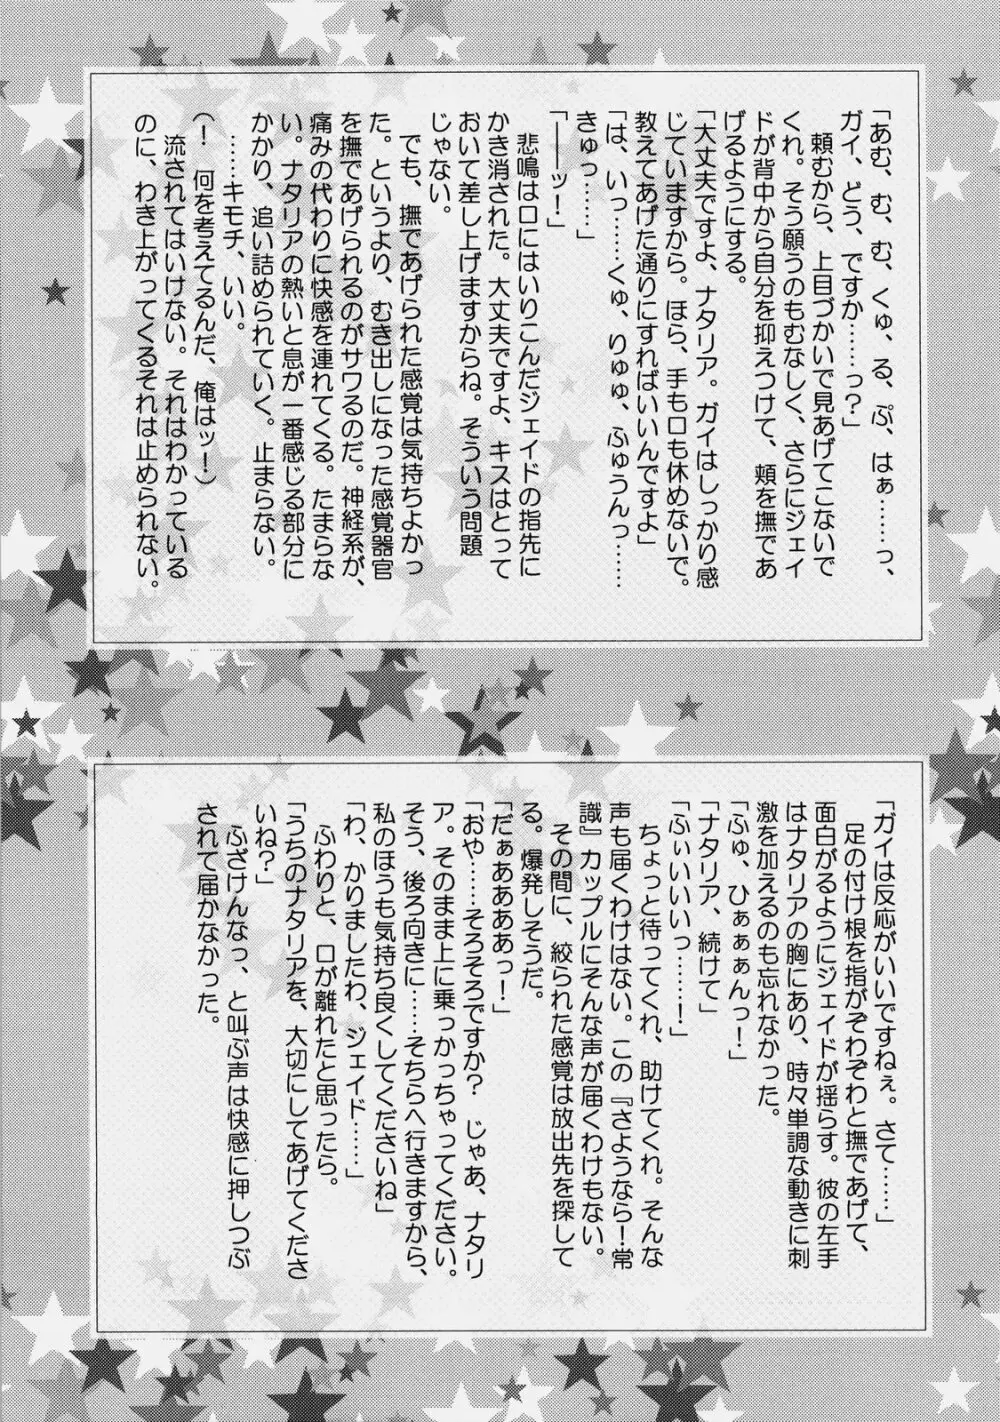 「あむ、む、む、くゅ、る、ぷ、はぁ……っ、
ガイ、どう、ですか……っ？」
　頼むから、上目づかいで見あげてこないで
くれ。そう願うのもむなしく、さらにジェイ
ドが背中から自分を抑えつけて、頬を撫であ
げるようにする。
「大丈夫ですよ、ナタリア。ガイはしっかり感
じていますから。ほら、手も口も休めないで。
教えてあげた通りにすればいいんですよ」
「は、いっ……くゅ、りゅゅ、ふゅうんっ……
きゅっ……」
「――ッ！」
　悲鳴は口にはいりこんだジェイドの指先に
かき消された。大丈夫ですよ、キスはとって
おいて差し上げますからね。そういう問題
じゃない。
　でも、撫であげられた感覚は気持ちよかっ
た。というより、むき出しになった感覚器官
を撫であげられるのがサワるのだ。神経系が、
痛みの代わりに快感を連れてくる。たまらな
い。ナタリアの熱いと息が一番感じる部分に
かかり、追い詰められていく。止まらない。
　……キモチ、いい。
（！　何を考えてるんだ、俺はッ！）
　流されてはいけない。それはわかっている
のに、わき上がってくるそれは止められない。
「ガイは反応がいいですねぇ。さて……」
　足の付け根を指がぞわぞわと撫であげて、
面白がるようにジェイドが揺らす。彼の左手
はナタリアの胸にあり、時々単調な動きに刺
激を加えるのも忘れなかった。
「ふゅ、ひぁぁぁんっ！」
「ナタリア、続けて」
「ふぃいいいっ……！」
　ちょっと待ってくれ、助けてくれ。そんな
声も届くわけはない。この『さようなら！常
識』カップルにそんな声が届くわけもない。
　その間に、絞られた感覚は放出先を探して
る。爆発しそうだ。
「だぁああああっ！」
「おや……そろそろですか？　じゃあ、ナタリ
ア。そのまま上に乗っかっちゃってください。
そう、後ろ向きに……そちらへ行きますから、
私のほうも気持ち良くしてくださいね」
「わ、かりましたわ、ジェイド……」
　ふわりと、口が離れたと思ったら。
「うちのナタリアを、大切にしてあげてくださ
いね？」
　ふざけんなっ、と叫ぶ声は快感に押しつぶ
されて届かなかった。